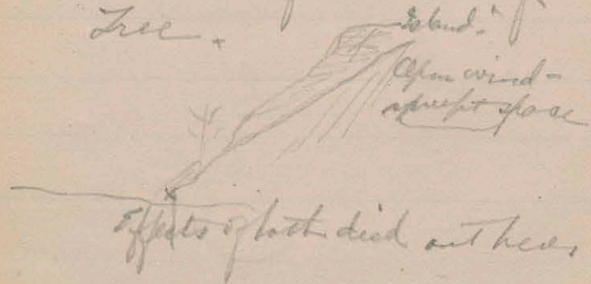 Tree.
Island.
Open wind-
swept space
Effects of both died out here,